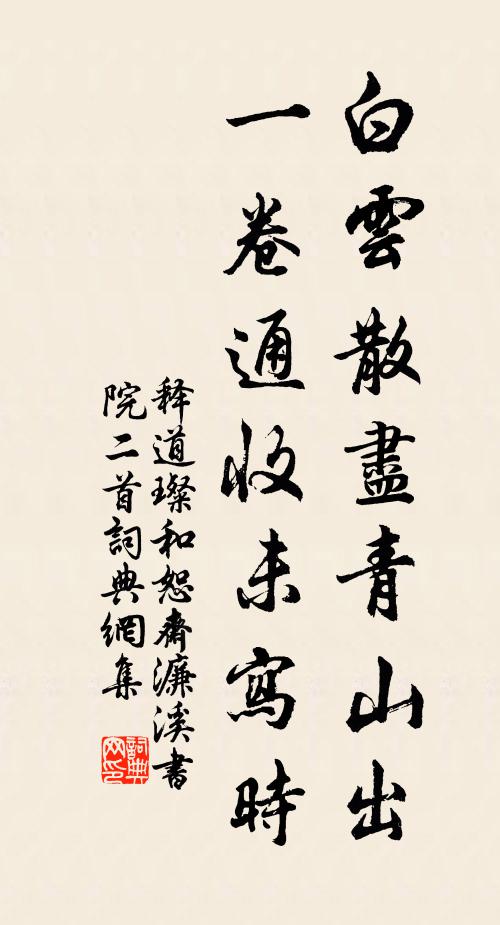 白雲散盡青山出
一卷通收未寫時
释道璨和恕齋濂溪書
院二首詞典網集
詞典
网印